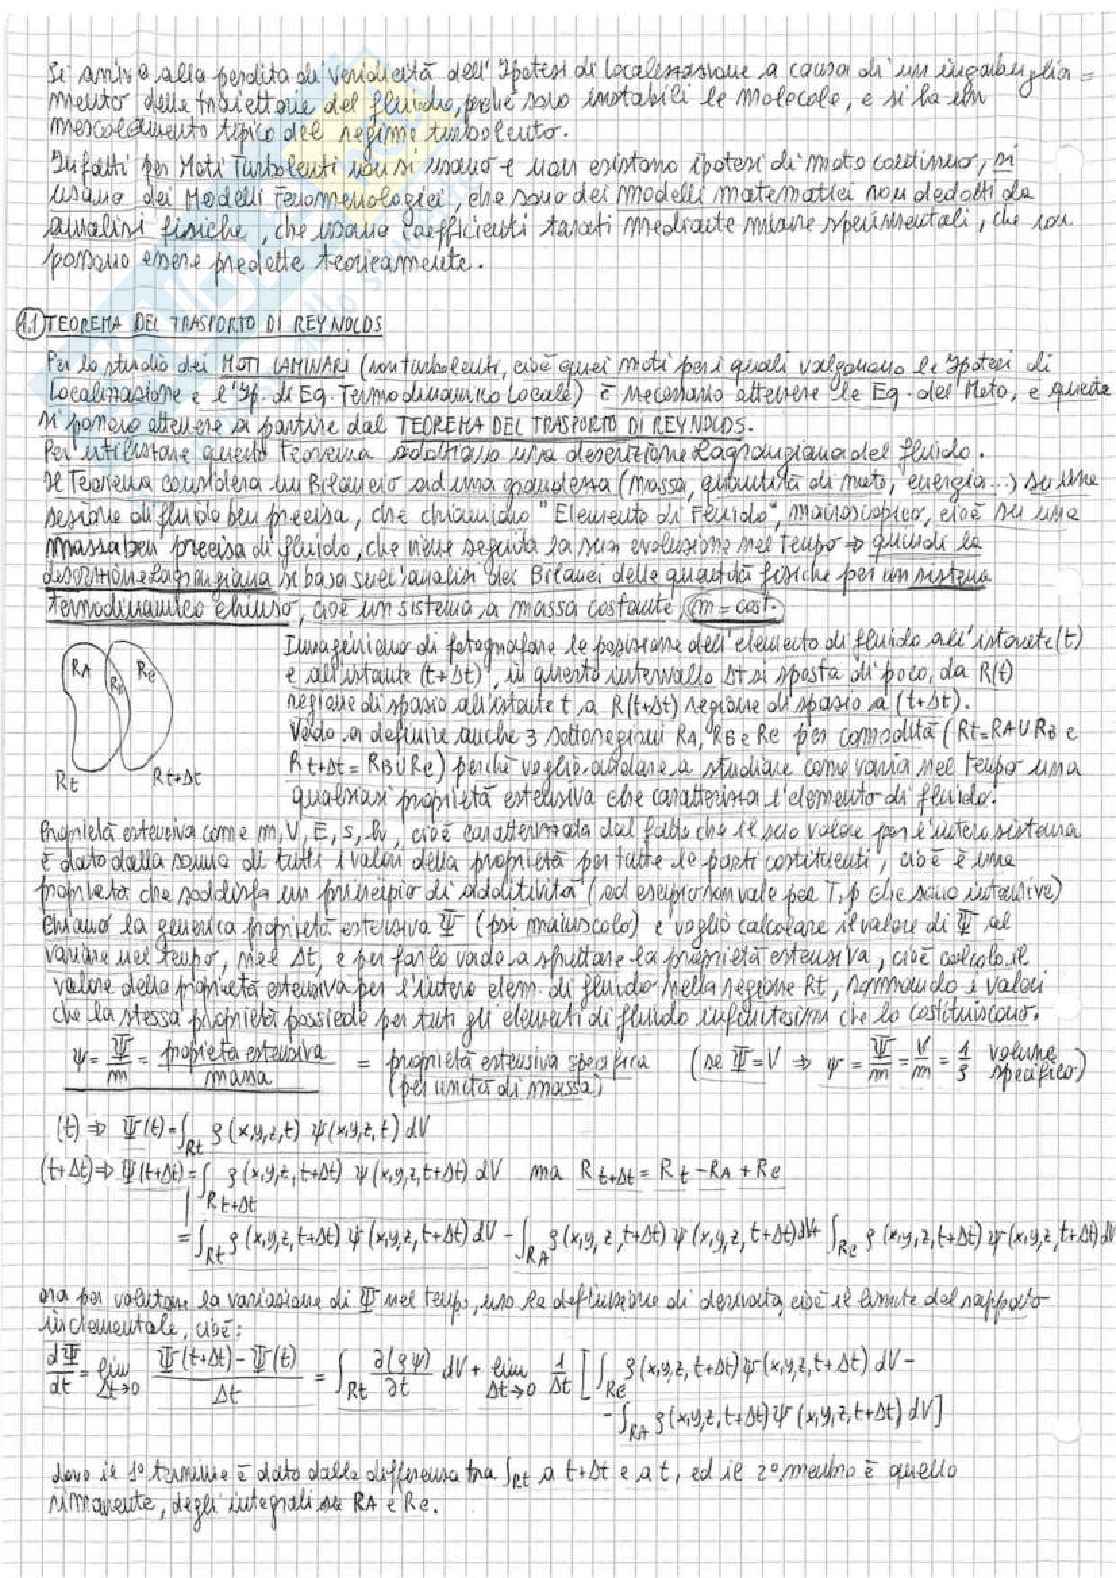 Si arriva alla perdita di veridicità dell'Ipotesi di Localizzazione a causa di un ingarbuglia=
mento delle traiettorie del fluido, poiché sono instabili le molecole, e si ha un
mescolamento tipico del regime turbolento.
Infatti per Moti Turbolenti non si usano e non esistono ipotesi di moto continuo, si
usano dei Modelli Fenomenologici, che sono dei modelli matematici non dedotti da
analisi fisiche, che usano coefficienti tarati mediante misure sperimentali, che non
possono essere predette teoricamente.
1.1 TEOREMA DEL TRASPORTO DI REYNOLDS
Per lo studio dei MOTI LAMINARI (non turbolenti, cioè quei moti per i quali valgono le Ipotesi di
Localizzazione e l'Ip. di Eq. Termodinamico Locale) è necessario ottenere le Eq. del Moto, e queste
si possono ottenere a partire dal TEOREMA DEL TRASPORTO DI REYNOLDS.
Per utilizzare questo teorema adottiamo una descrizione Lagrangiana del fluido.
Il Teorema considera un Bilancio ad una grandezza (massa, quantità di moto, energia...) su una
sezione di fluido ben precisa, che chiamiamo "Elemento di Fluido", macroscopico, cioè su una
massa ben precisa di fluido, che viene seguita la sua evoluzione nel tempo ⇒ quindi la
descrizione Lagrangiana si basa sull'analisi dei Bilanci delle quantità fisiche per un sistema
termodinamico chiuso, cioè un sistema a massa costante, m = cost.
RA RB Rc
Rt Rt+Δt
Immaginiamo di fotografare la posizione dell'elemento di fluido all'istante (t)
e all'istante (t+Δt), in questo intervallo Δt si sposta di poco, da R(t)
regione di spazio all'istante t a R(t+Δt) regione di spazio a (t+Δt).
Vado a definire anche 3 sottoregioni RA, RB e Rc per comodità (Rt=RA∪RB e
Rt+Δt = RB∪Rc) perché voglio andare a studiare come varia nel tempo una
qualsiasi proprietà estensiva che caratterizza l'elemento di fluido.
Proprietà estensiva come m, V, E, s, h, cioè caratterizzata dal fatto che il suo valore per l'intero sistema
è dato dalla somma di tutti i valori della proprietà per tutte le parti costituenti, cioè è una
proprietà che soddisfa un principio di additività (ad esempio non vale per T, p che sono intensive)
Chiamo la generica proprietà estensiva Ψ (psi maiuscolo) e voglio calcolare il valore di Ψ al
variare nel tempo, nel Δt, e per farlo vado a sfruttare la proprietà estensiva, cioè calcolo il
valore della proprietà estensiva per l'intero elem. di fluido nella regione Rt, sommando i valori
che la stessa proprietà possiede per tutti gli elementi di fluido infinitesimi che lo costituiscono.
ψ = Ψ/m = proprietà estensiva/massa = proprietà estensiva specifica (per unità di massa) (se Ψ=V ⇒ ψ = Ψ/m = V/m = 1/ρ volume specifico)
(t) ⇒ Ψ(t) = ∫Rt ρ(x,y,z,t) ψ(x,y,z,t) dV
(t+Δt) ⇒ Ψ(t+Δt) = ∫Rt+Δt ρ(x,y,z,t+Δt) ψ(x,y,z,t+Δt) dV ma Rt+Δt = Rt - RA + Rc
= ∫Rt ρ(x,y,z,t+Δt) ψ(x,y,z,t+Δt) dV - ∫RA ρ(x,y,z,t+Δt) ψ(x,y,z,t+Δt) dV + ∫Rc ρ(x,y,z,t+Δt) ψ(x,y,z,t+Δt) dV
ora per valutare la variazione di Ψ nel tempo, uso la definizione di derivata, cioè il limite del rapporto
incrementale, cioè:
dΨ/dt = lim Δt→0 Ψ(t+Δt) - Ψ(t)/Δt = ∫Rt ∂(ρψ)/∂t dV + lim Δt→0 1/Δt [∫Rc ρ(x,y,z,t+Δt) ψ(x,y,z,t+Δt) dV -
- ∫RA ρ(x,y,z,t+Δt) ψ(x,y,z,t+Δt) dV]
dove il 1° termine è dato dalla differenza tra ∫Rt a t+Δt e a t, ed il 2° membro è quello
rimanente, degli integrali su RA e Rc.